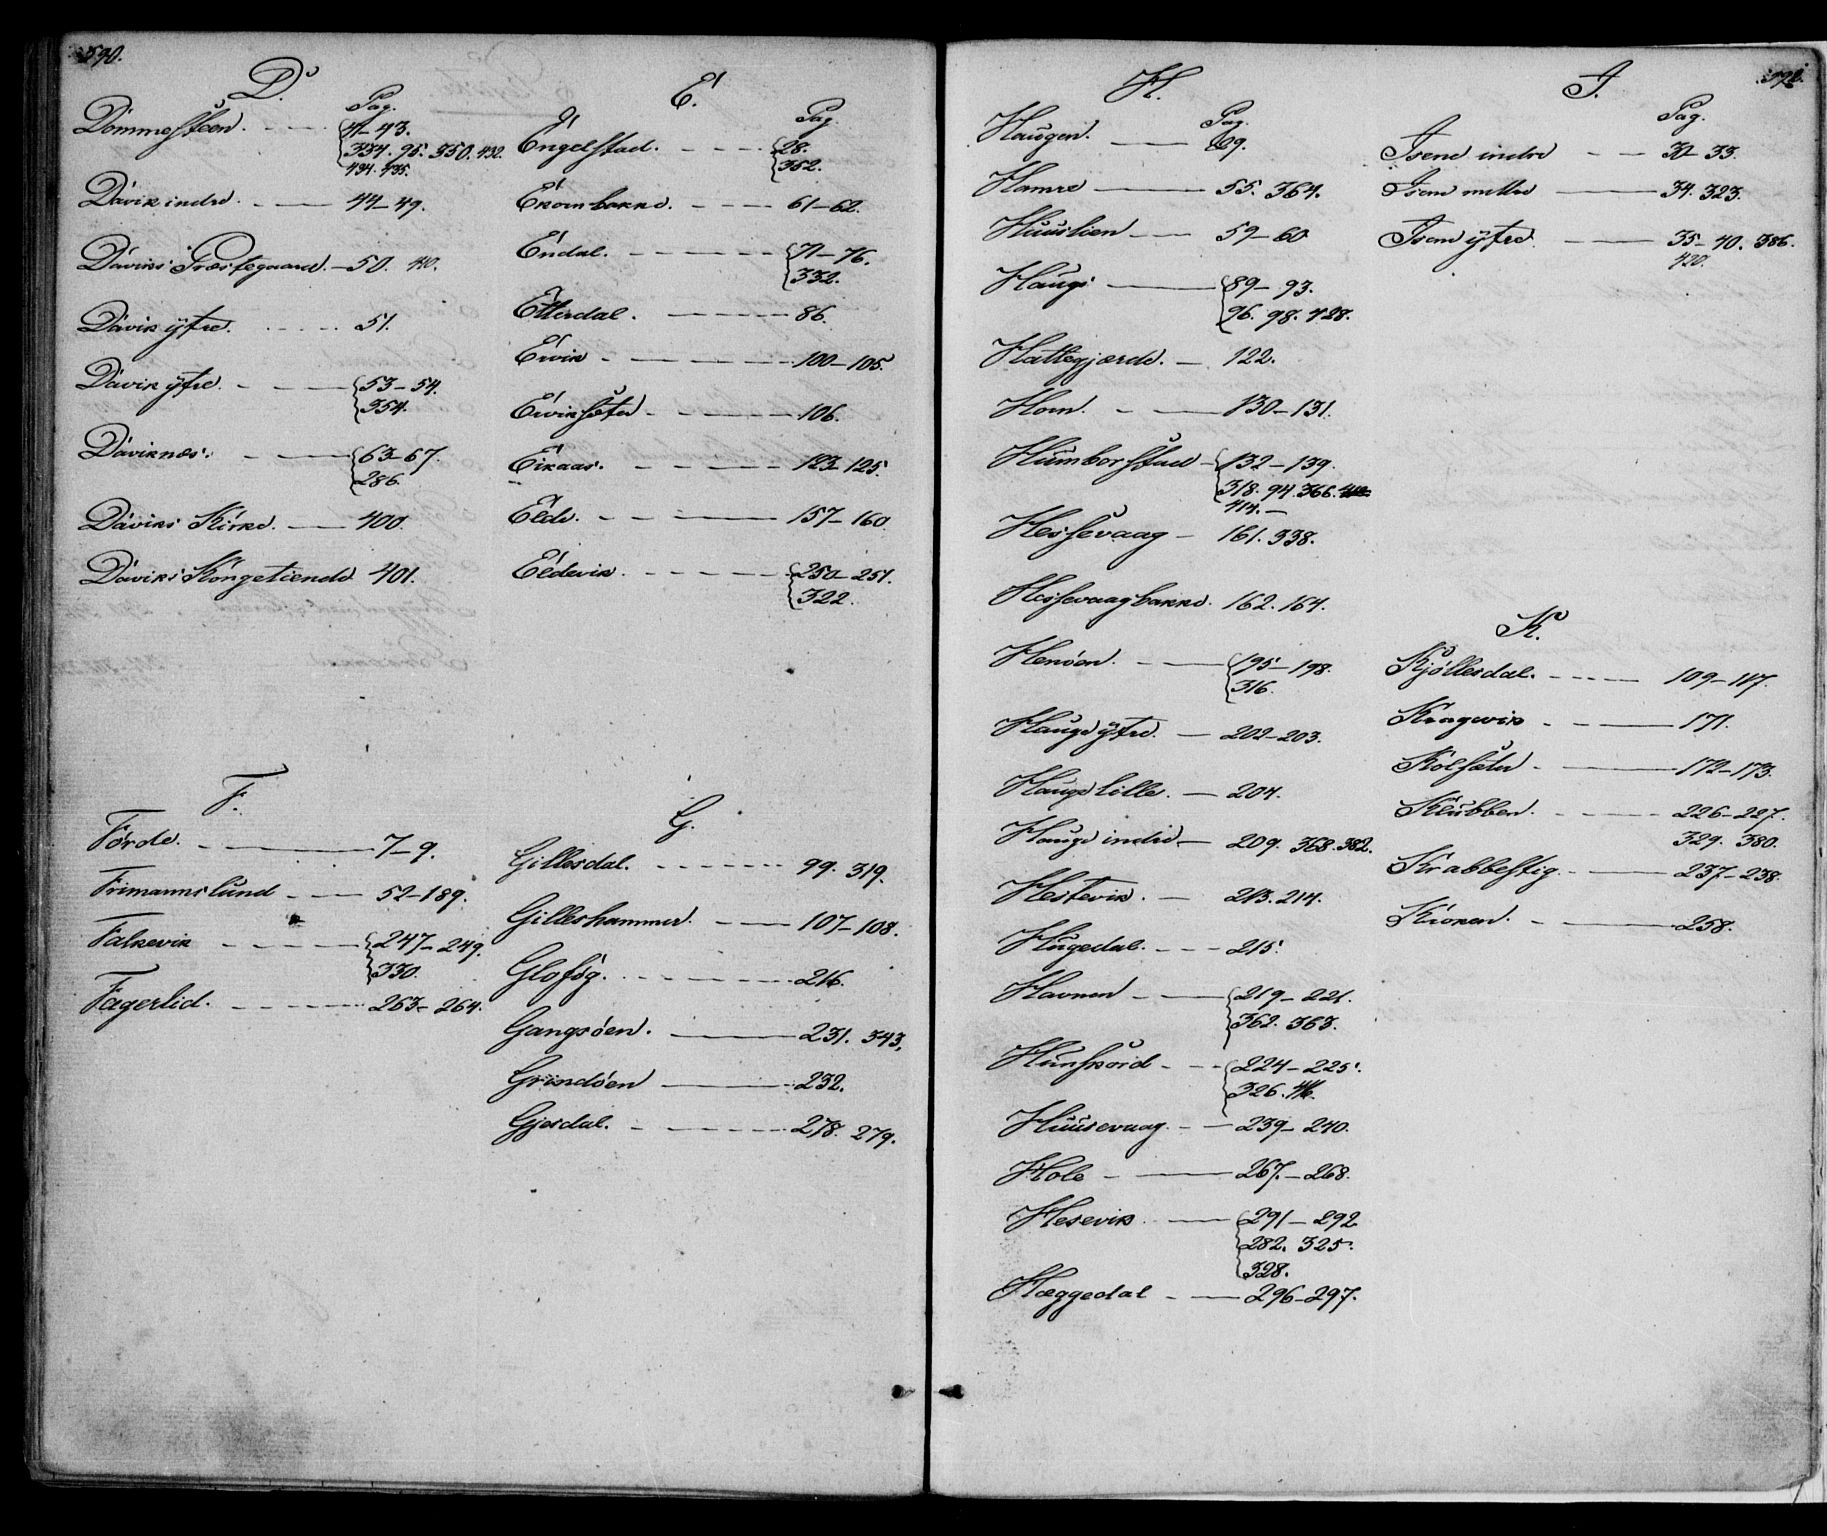 590.
D.
Pag.
Dommesteen. 41-43.
334. 95. 350. 432.
434. 435.
Davik indre. 44-49.
Daviks Præstegaard. 50. 410.
Davik ytre. 51.
Davik ytre. 53-54.
354.
Daviknæs. 63-67.
286.
Daviks Kirke. 400.
Daviks Kongetiende 401.
E.
Pag.
Engelstad. 28.
352.
Ekornbakke. 61-62.
Endal. 71-76.
332.
Etterdal. 86.
Ervik 100-105.
Erviksæter 106.
Eikaas. 123-125.
Elde. 157-160.
Eldevik. 250-251.
322.
F.
Førde. 7-9.
Frimannslund 52-189.
Falkevik 247-249.
330.
Fagerlid. 263-264.
G.
Gillesdal. 99. 319.
Gilleshammer. 107-108.
Gloføg. 216.
Gangsøen. 231. 343.
Grindøen 232.
Gjesdal. 278. 279.
H.
Pag.
Haugen. 69.
Hamre 55. 364.
Huuslien 59-60
Hauge 89-93.
96. 98. 428.
Hattegjærde. 122.
Horn. 130-131.
Humborstad 132-139.
318. 94. 366.
414.
Hessevaag 161. 338.
Hessevaagbakke. 162. 164.
Henøen. 195-198.
316.
Hauge ytre. 202-203.
Hauge lille. 204.
Hauge indre 209. 368. 382.
Hestevik. 213. 214.
Hugedal. 215.
Havnen 219-221.
362. 363.
Hunskord 224-225.
326. 416.
Huusevaag. 239-240.
Hole 267.-268.
Hesevik. 291-292.
282. 325.
328.
Hæggedal 296-297.
I.
Pag.
Isene indre 32-33.
Isene mittre 34. 323.
Isene ytre 35-40. 386.
420.
K.
Kjøllesdal. 109-117.
Kragevik 171.
Kolsæter 172-173.
Klubben. 226-227.
329. 380.
Krabbestig. 237-238.
Kroken. 258.